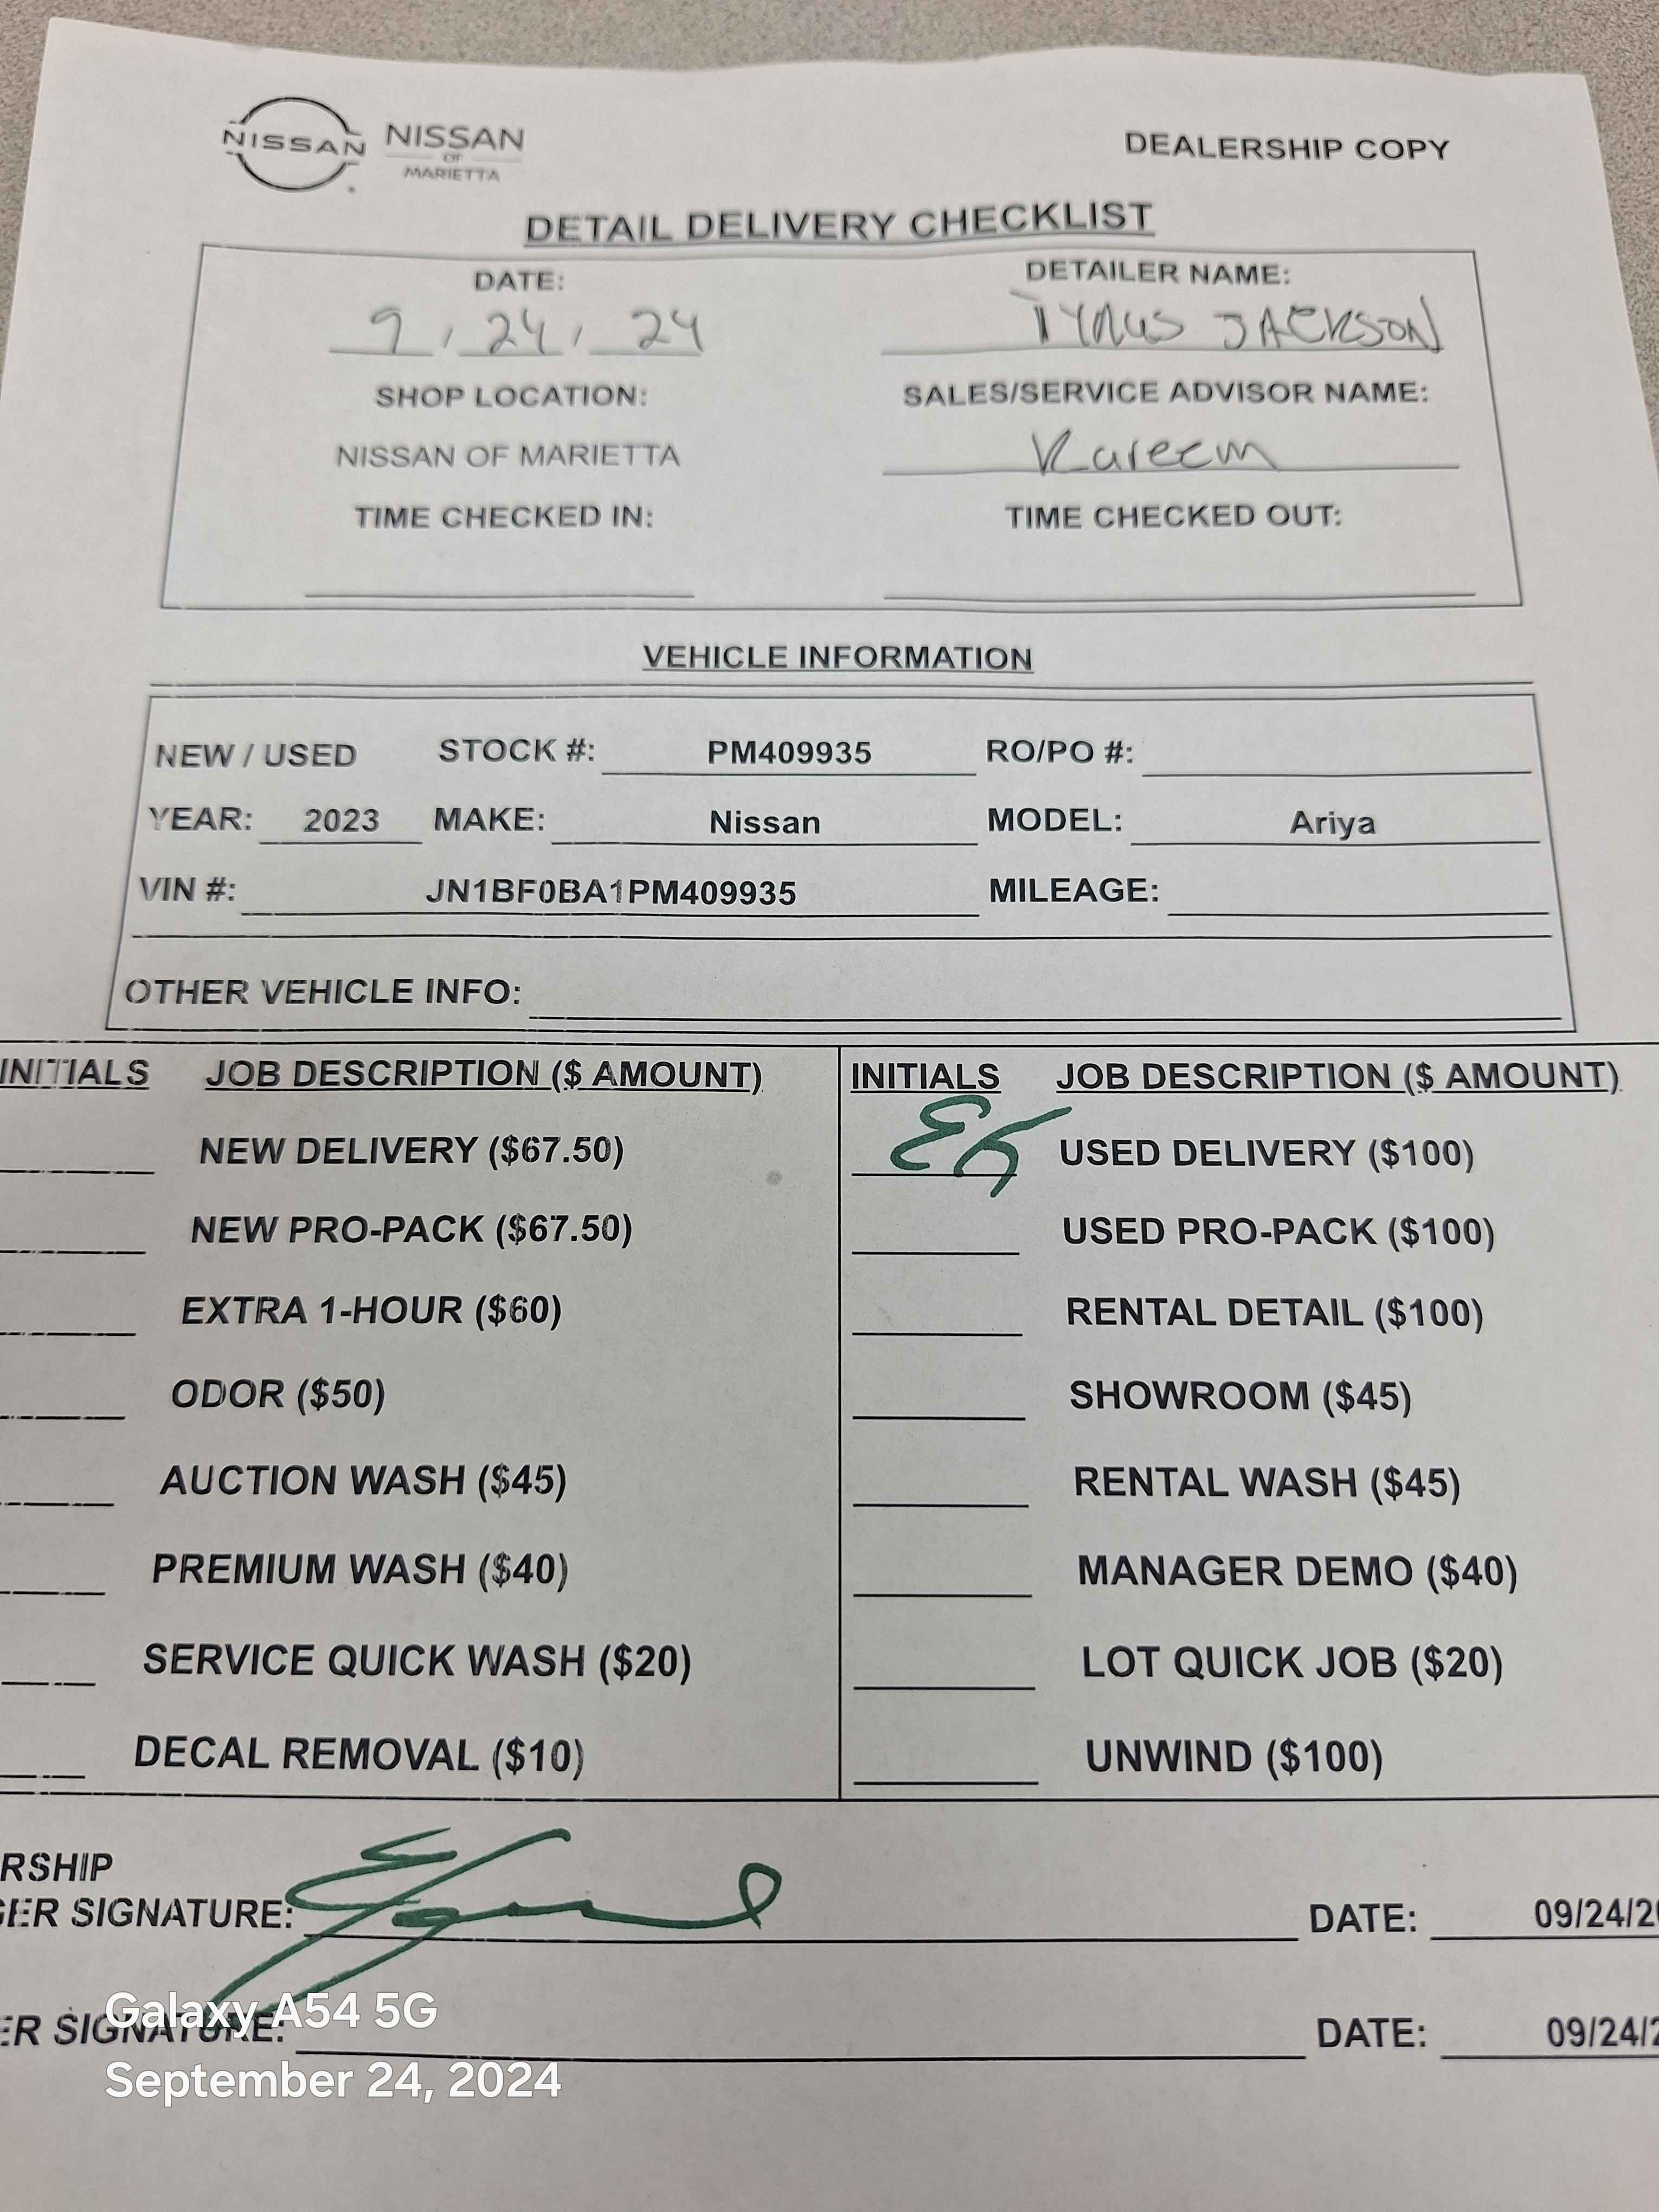 NISSAN NISSAN OF MARIETTA DEALERSHIP COPY
DETAIL DELIVERY CHECKLIST
DATE: DETAILER NAME:
9 / 24 / 24 TYRUS JACKSON
SHOP LOCATION: SALES/SERVICE ADVISOR NAME:
NISSAN OF MARIETTA Kareem
TIME CHECKED IN: TIME CHECKED OUT:
VEHICLE INFORMATION
NEW / USED STOCK #: PM409935 RO/PO #:
YEAR: 2023 MAKE: Nissan MODEL: Ariya
VIN #: JN1BF0BA1PM409935 MILEAGE:
OTHER VEHICLE INFO:
INITIALS JOB DESCRIPTION ($ AMOUNT) INITIALS JOB DESCRIPTION ($ AMOUNT)
NEW DELIVERY ($67.50) EK USED DELIVERY ($100)
NEW PRO-PACK ($67.50) USED PRO-PACK ($100)
EXTRA 1-HOUR ($60) RENTAL DETAIL ($100)
ODOR ($50) SHOWROOM ($45)
AUCTION WASH ($45) RENTAL WASH ($45)
PREMIUM WASH ($40) MANAGER DEMO ($40)
SERVICE QUICK WASH ($20) LOT QUICK JOB ($20)
DECAL REMOVAL ($10) UNWIND ($100)
RSHIP
GER SIGNATURE: DATE: 09/24/20
ER SIGNATURE: DATE: 09/24/2
Galaxy A54 5G
September 24, 2024